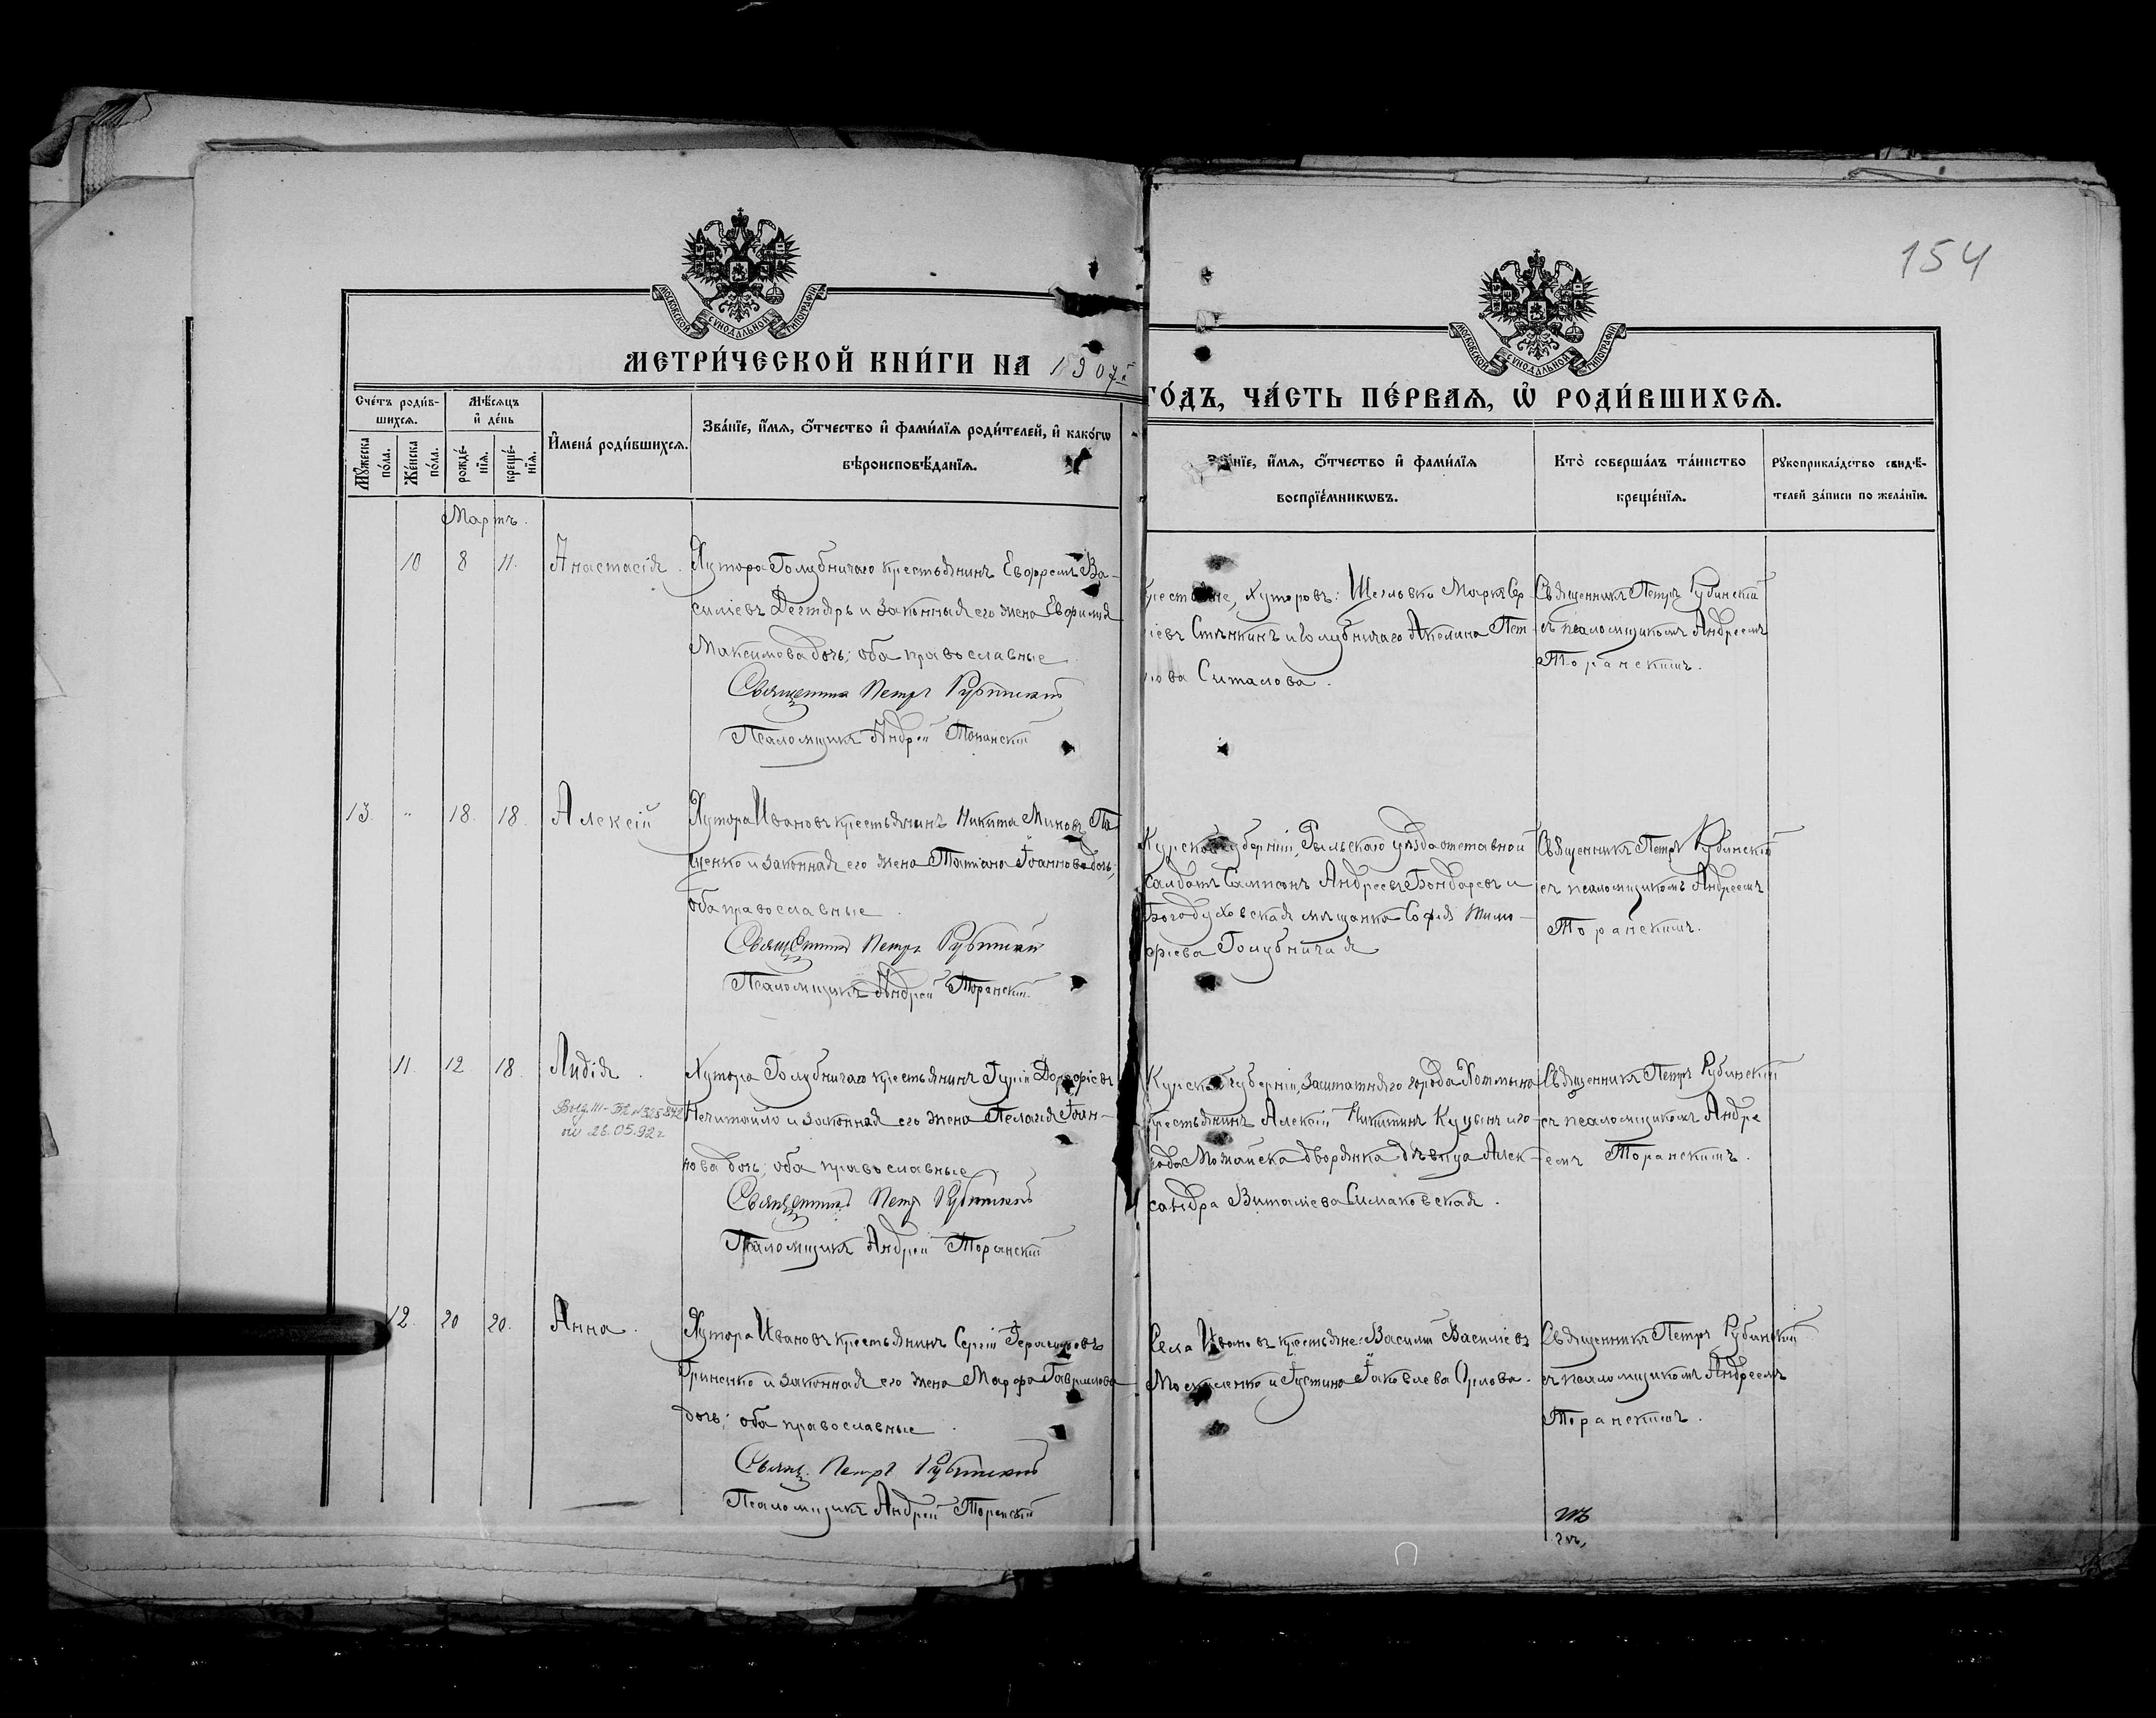 154
МОСКОВСКОЙ СѴНОДАЛЬНОЙ ТИПОГРАФІИ
МОСКОВСКОЙ СѴНОДАЛЬНОЙ ТИПОГРАФІИ
МЕТРИ́ЧЕСКОЙ КНИ́ГИ НА 1907й
ГО́ДЪ, ЧА́СТЬ ПЕ́РВАѦ, Ѡ҆ РОДИ́ВШИХСѦ.
Сче́тъ роди́в-
шихсѧ.
Мꙋ́жеска по́ла.
Же́нска по́ла.
Мѣ́сѧцъ
и҆ де́нь
рожде́-
нїѧ.
креще́-
нїѧ.
И҆мена̀ роди́вшихсѧ.
Зва́нїе, и҆́мѧ, ѻ҆́тчество и҆ фами́лїѧ роди́телей, и҆ како́гѡ
вѣроисповѣ́данїѧ.
Зва́нїе, и҆́мѧ, ѻ҆́тчество и҆ фами́лїѧ
воспрїе́мникѡвъ.
Кто̀ соверша́лъ та́инство
креще́нїѧ.
Рꙋкоприкла́дство свидѣ́-
телей за́писи по жела́нїю.
Мартъ.
10 8 11. Анастасія.
Хутора Голубничаго крестьянинъ Евфремъ Ва-
силіевъ Дегтярь и законная его жена Евфимія
Максимова дочь; оба православные
Священникъ Петръ Рубинскій
Псаломщикъ Андрей Торанскій
Крестьяне, хуторовъ: Шегльвка Маркъ Сер-
іевъ Стынкинъ и Голубничаго Акелина Пет
рова Ситалова.
Священникъ Петръ Рубинскій
съ псаломщикомъ Андреемъ
Торанскимъ.
13. " 18. 18. Алексій
Хутора Ивановъ крестьянинъ Никита Миновъ Па
щенко и законная его жена Татіана Іоаннова дочь;
оба православные
Священникъ Петръ Рубинскій
Псаломщикъ Андрей Торанскій
Курской губерніи, Рыльскаго уѣзда отставной
салдатъ Сампсонъ Андреевъ Бондаревъ и
Богодуховская мѣщанка Софія Тимо-
фіева Голубничая
Священникъ Петръ Рубинскій
съ псаломщикомъ Андреемъ
Торанскимъ.
11. 12 18. Лидія.
от 26.05.92г
Хутора Голубничаго крестьянинъ Гурій Дорофіевъ
Нечитайло и законная его жена Пелагія Іоан-
нова дочь; оба православные
Священникъ Петръ Рубинскій
Псаломщикъ Андрей Торанскій
Курской губерніи, заштатняго города Хотмына
крестьянинъ Алексій Никитинъ Куцынъ и го-
рода Можайска дворянка дѣвица Алек-
сандра Виталіева Симаковская.
Священникъ Петръ Рубинскій
съ псаломщикомъ Андре
емъ Торанскимъ.
12. 20 20. Анна.
Хутора Ивановъ крестьянинъ Сергій Герасимовъ
Гриненко и законная его жена Марфа Гавриилова
дочь; оба православные.
Свящ. Петръ Рубинскій
Псаломщикъ Андрей Торанскій
Села Ивановъ крестьяне: Василій Василіевъ
Москаленко и Іустина Іаковлева Орлова.
Священникъ Петръ Рубинскій
съ псаломщикомъ Андреемъ
Торанскимъ.